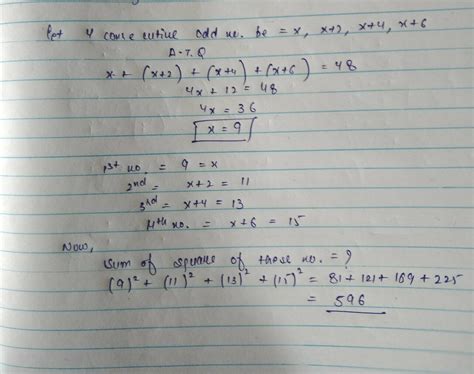 Let 4 consecutive odd no. be = x, x+2, x+4, x+6
A.T.Q
x + (x+2) + (x+4) + (x+6) = 48
4x + 12 = 48
4x = 36
x = 9
1st no. = 9 = x
2nd = x+2 = 11
3rd = x+4 = 13
4th no. = x+6 = 15
Now,
sum of square of these no. = ?
(9)² + (11)² + (13)² + (15)² = 81 + 121 + 169 + 225
= 596